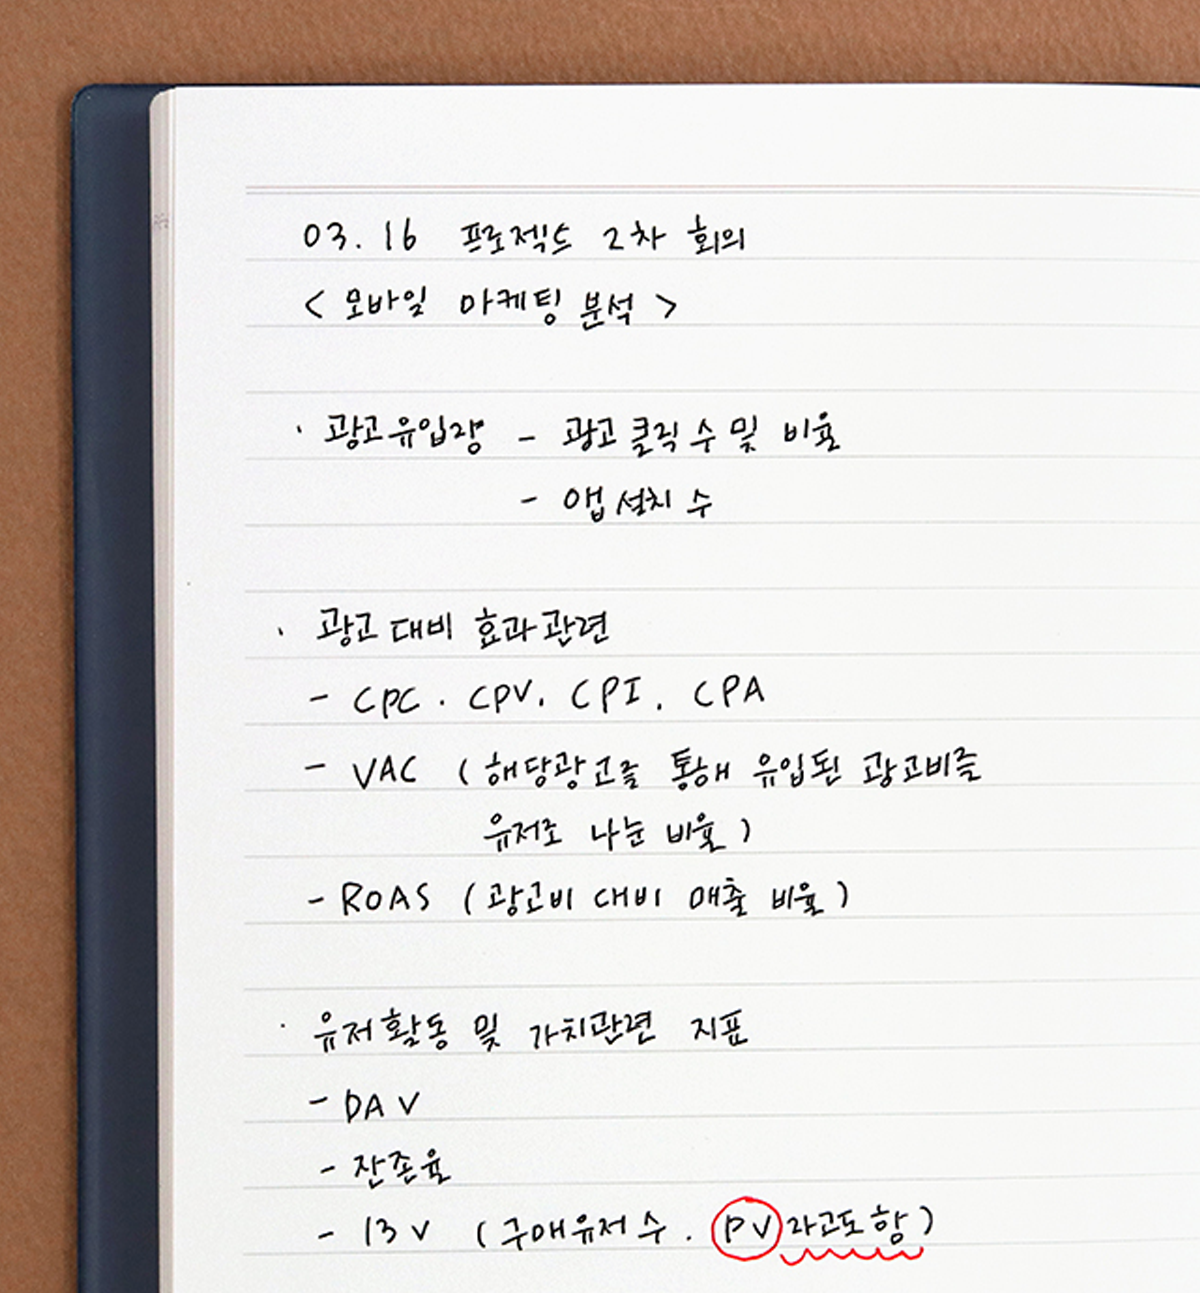 03. 16 프로젝트 2차 회의
< 모바일 마케팅 분석 >
· 광고유입량 - 광고 클릭 수 및 비율
- 앱 설치 수
· 광고 대비 효과 관련
- CPC . CPV. CPI. CPA
- VAC ( 해당광고를 통해 유입된 광고비를
유저로 나눈 비율 )
- ROAS ( 광고비 대비 매출 비율 )
· 유저 활동 및 가치관련 지표
- DAV
- 잔존율
- 13V ( 구매유저 수 . PV 라고도 함 )